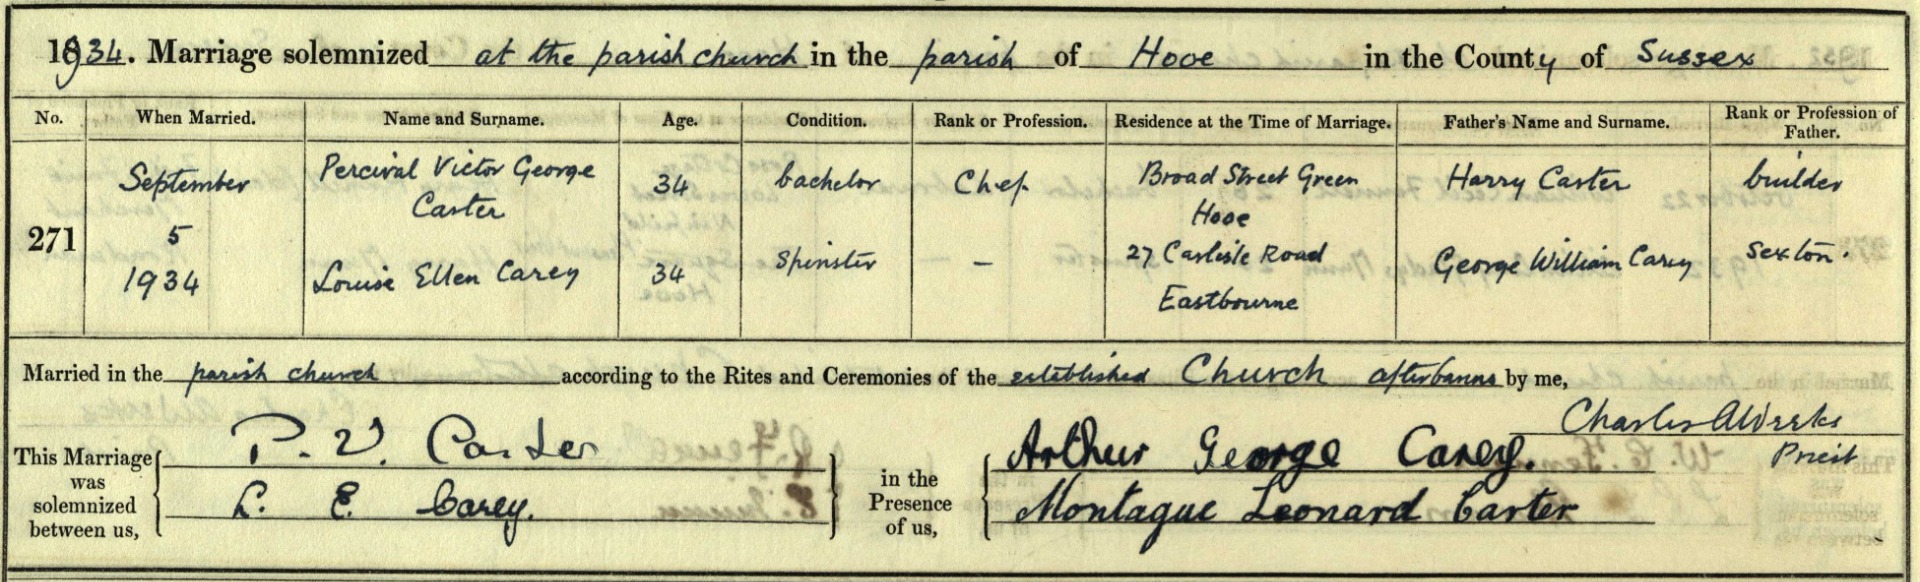 1934. Marriage solemnized at the parish church in the parish of Hooe in the County of Sussex
No. When Married. Name and Surname. Age. Condition. Rank or Profession. Residence at the Time of Marriage. Father's Name and Surname. Rank or Profession of Father.
271
September 5 1934
Percival Victor George Carter 34 bachelor Chef Broad Street Green Hooe Harry Carter builder
Louise Ellen Carey 34 Spinster - 27 Carlisle Road Eastbourne George William Carey Sexton.
Married in the parish church according to the Rites and Ceremonies of the established Church after banns by me,
Charles A Weekes
Priest
This Marriage was solemnized between us,
P. V. Carter
L. E. Carey.
in the Presence of us,
Arthur George Carey.
Montague Leonard Carter